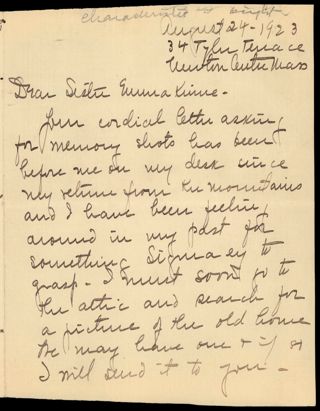 August 24 - 1923
34 Tyler Terrace
Newton Centre Mass
Dear Sister Emma Kime -
Your cordial letter asking
for memory shots has been
before me on my desk since
my return from the mountains
and I have been feeling
around in my past for
something Sigma ey to
grasp - I must soon go to
the attic and search for
a picture of the old home
We may have one & if so
I will send it to you -